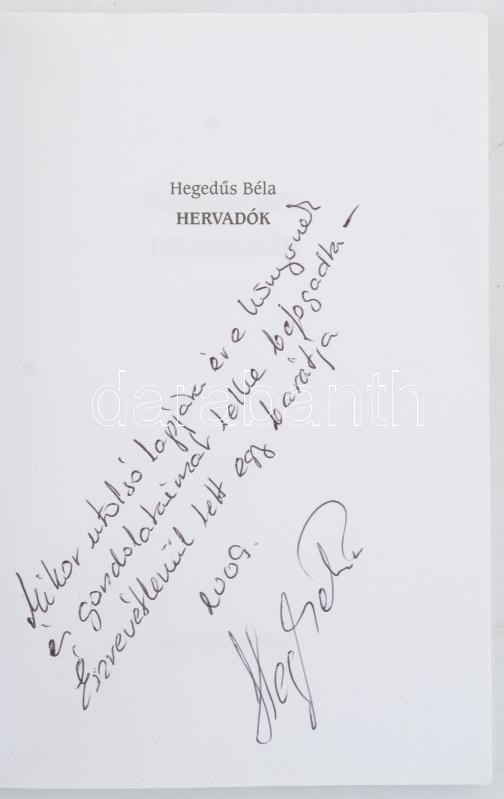 Hegedűs Béla
HERVADÓK
Mikor utolsó lapjára ére könyvnek
és gondolataimat lelke befogadta –
Észrevétlenül lett egy barátja
2009.
darabanth